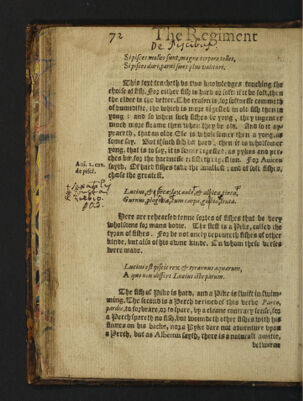 72 The Regiment
De Piscibus
Si pisces molles sunt, magno corpore tolles,
Si pisces duri, parui sunt plus valituri.
This text teacheth vs two knowledges touching the
choise of fish, For either fish is hard or soft: if it be soft, then
the elder is the better. The reason is, for softnesse commeth
of humiditie, the which is more digested in old fish then in
yong: and so when such fishes be yong, they ingender
much more fleame then when they be old. And so it ap-
peareth, that an olde Ele is wholsomer then a yong, as
some say. But if such fish be hard, then it is wholsomer
yong, that is to say, it is sooner digested, as pykes and perches
be, for the hardnesse resisteth digestion. For Auicen
sayth, Of hard fishes take the smallest: and of soft fishes,
chuse the greatest.
Aui. 2. can.
de pisci.
Lucius, & perca, &
Gurnus, plagitia, cum carpa,
Here are rehearsed tenne sortes of fishes that be very
wholsome for mans bodie. The first is a Pike, called the
tyran of fishes. For he not onely deuoureth fishes of other
kinde, but also of his owne kinde. On whom these verses
were made.
Lucius est piscis rex & tyrannus aquarum,
A quo non differt Lucius iste parum.
The fish of Pike is hard, and a Pike is swift in swim-
ming. The second is a Perch deriued of this verbe Parco,
parcis, to forbeare, or to spare, by a cleane contrary sense, for
a Perch spareth no fish, but woundeth other fishes with his
finnes on his backe, nor a Pyke dare not aduenture vpon
a Perch, but as Albertus sayth, there is a naturall amitie,
betweene